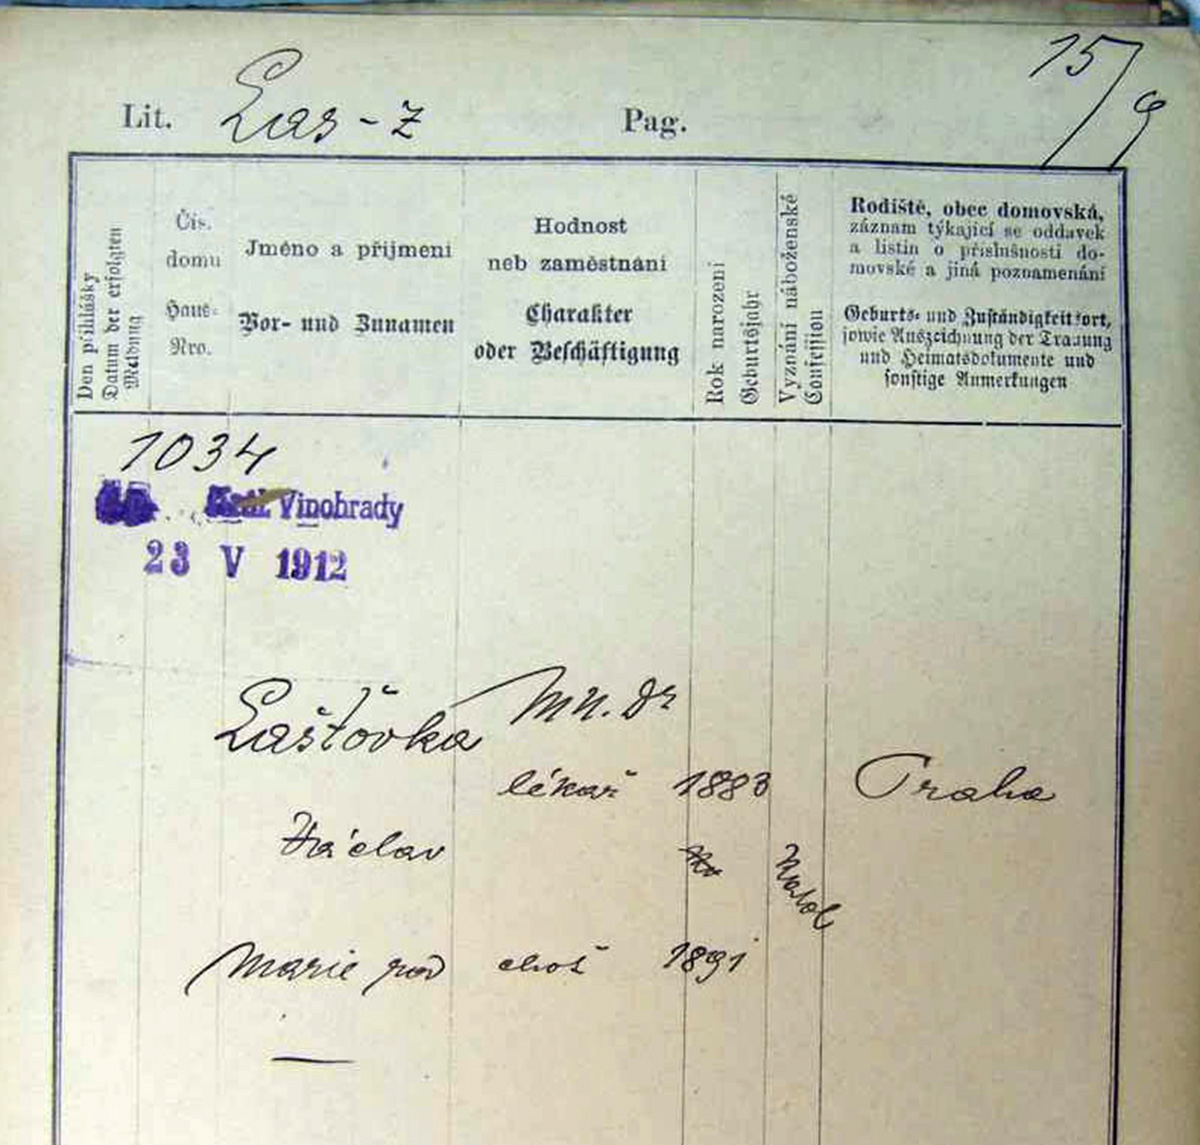 15/9
Lit. Las-Z Pag.
Den přihlášky
Datum der erfolgten
Meldung
Čís.
domu
Haus-
Nro.
Jméno a příjmení
Vor- und Zunamen
Hodnost
neb zaměstnání
Charakter
oder Beschäftigung
Rok narození
Geburtsjahr
Vyznání náboženské
Confession
Rodiště, obec domovská,
záznam týkající se oddavek
a listin o příslušnosti do-
movské a jiná poznamenání
Geburts- und Zuständigkeitsort,
sowie Auszeichnung der Trauung
und Heimatsdokumente und
sonstige Anmerkungen
1034
Král. Vinohrady
23 V 1912
Lašťovka MU. Dr
lékař 1883 Praha
Václav Katol
Marie roz choť 1891